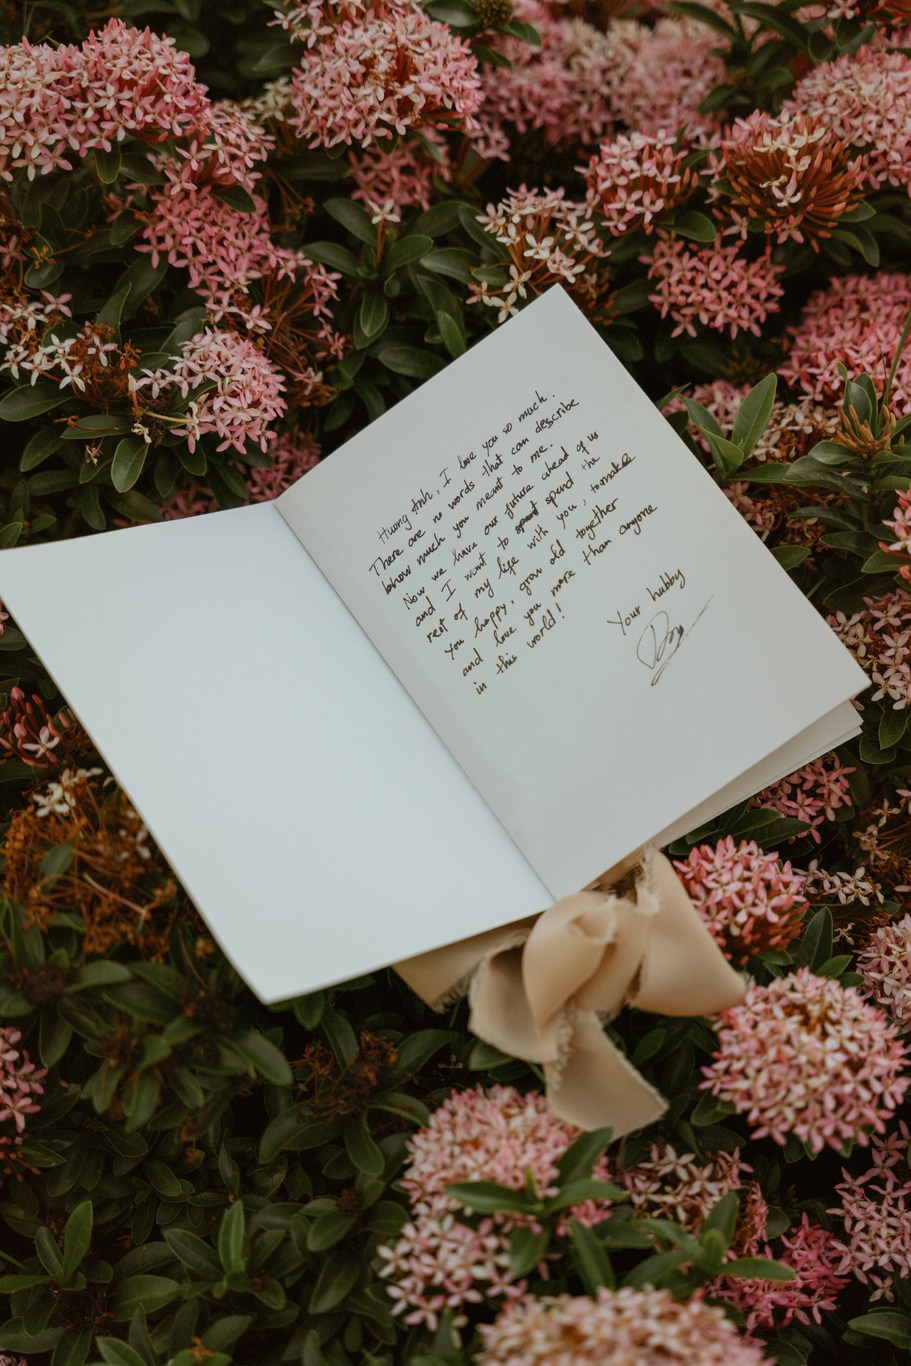 Huong Anh, I love you so much.
There are no words that can describe
how much you meant to me.
Now we have our future ahead of us
and I want to spend the
rest of my life with you, to make
you happy, grow old together
and love you more than anyone
in this world!
Your hubby